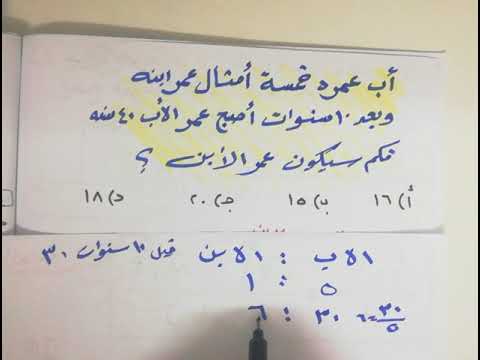 أب عمره خمسة أمثال عمر ابنه
وبعد ١٠ سنوات أصبح عمر الأب ٤٠ سنه
فكم سيكون عمر الأبن ؟
أ) ١٦ ب) ١٥ جـ) ٢٠ د) ١٨
الاب : الابن قبل ١٠ سنوات ٣٠
٥ : ١
٣٠ : ٦ ٣٠/٥ = ٦